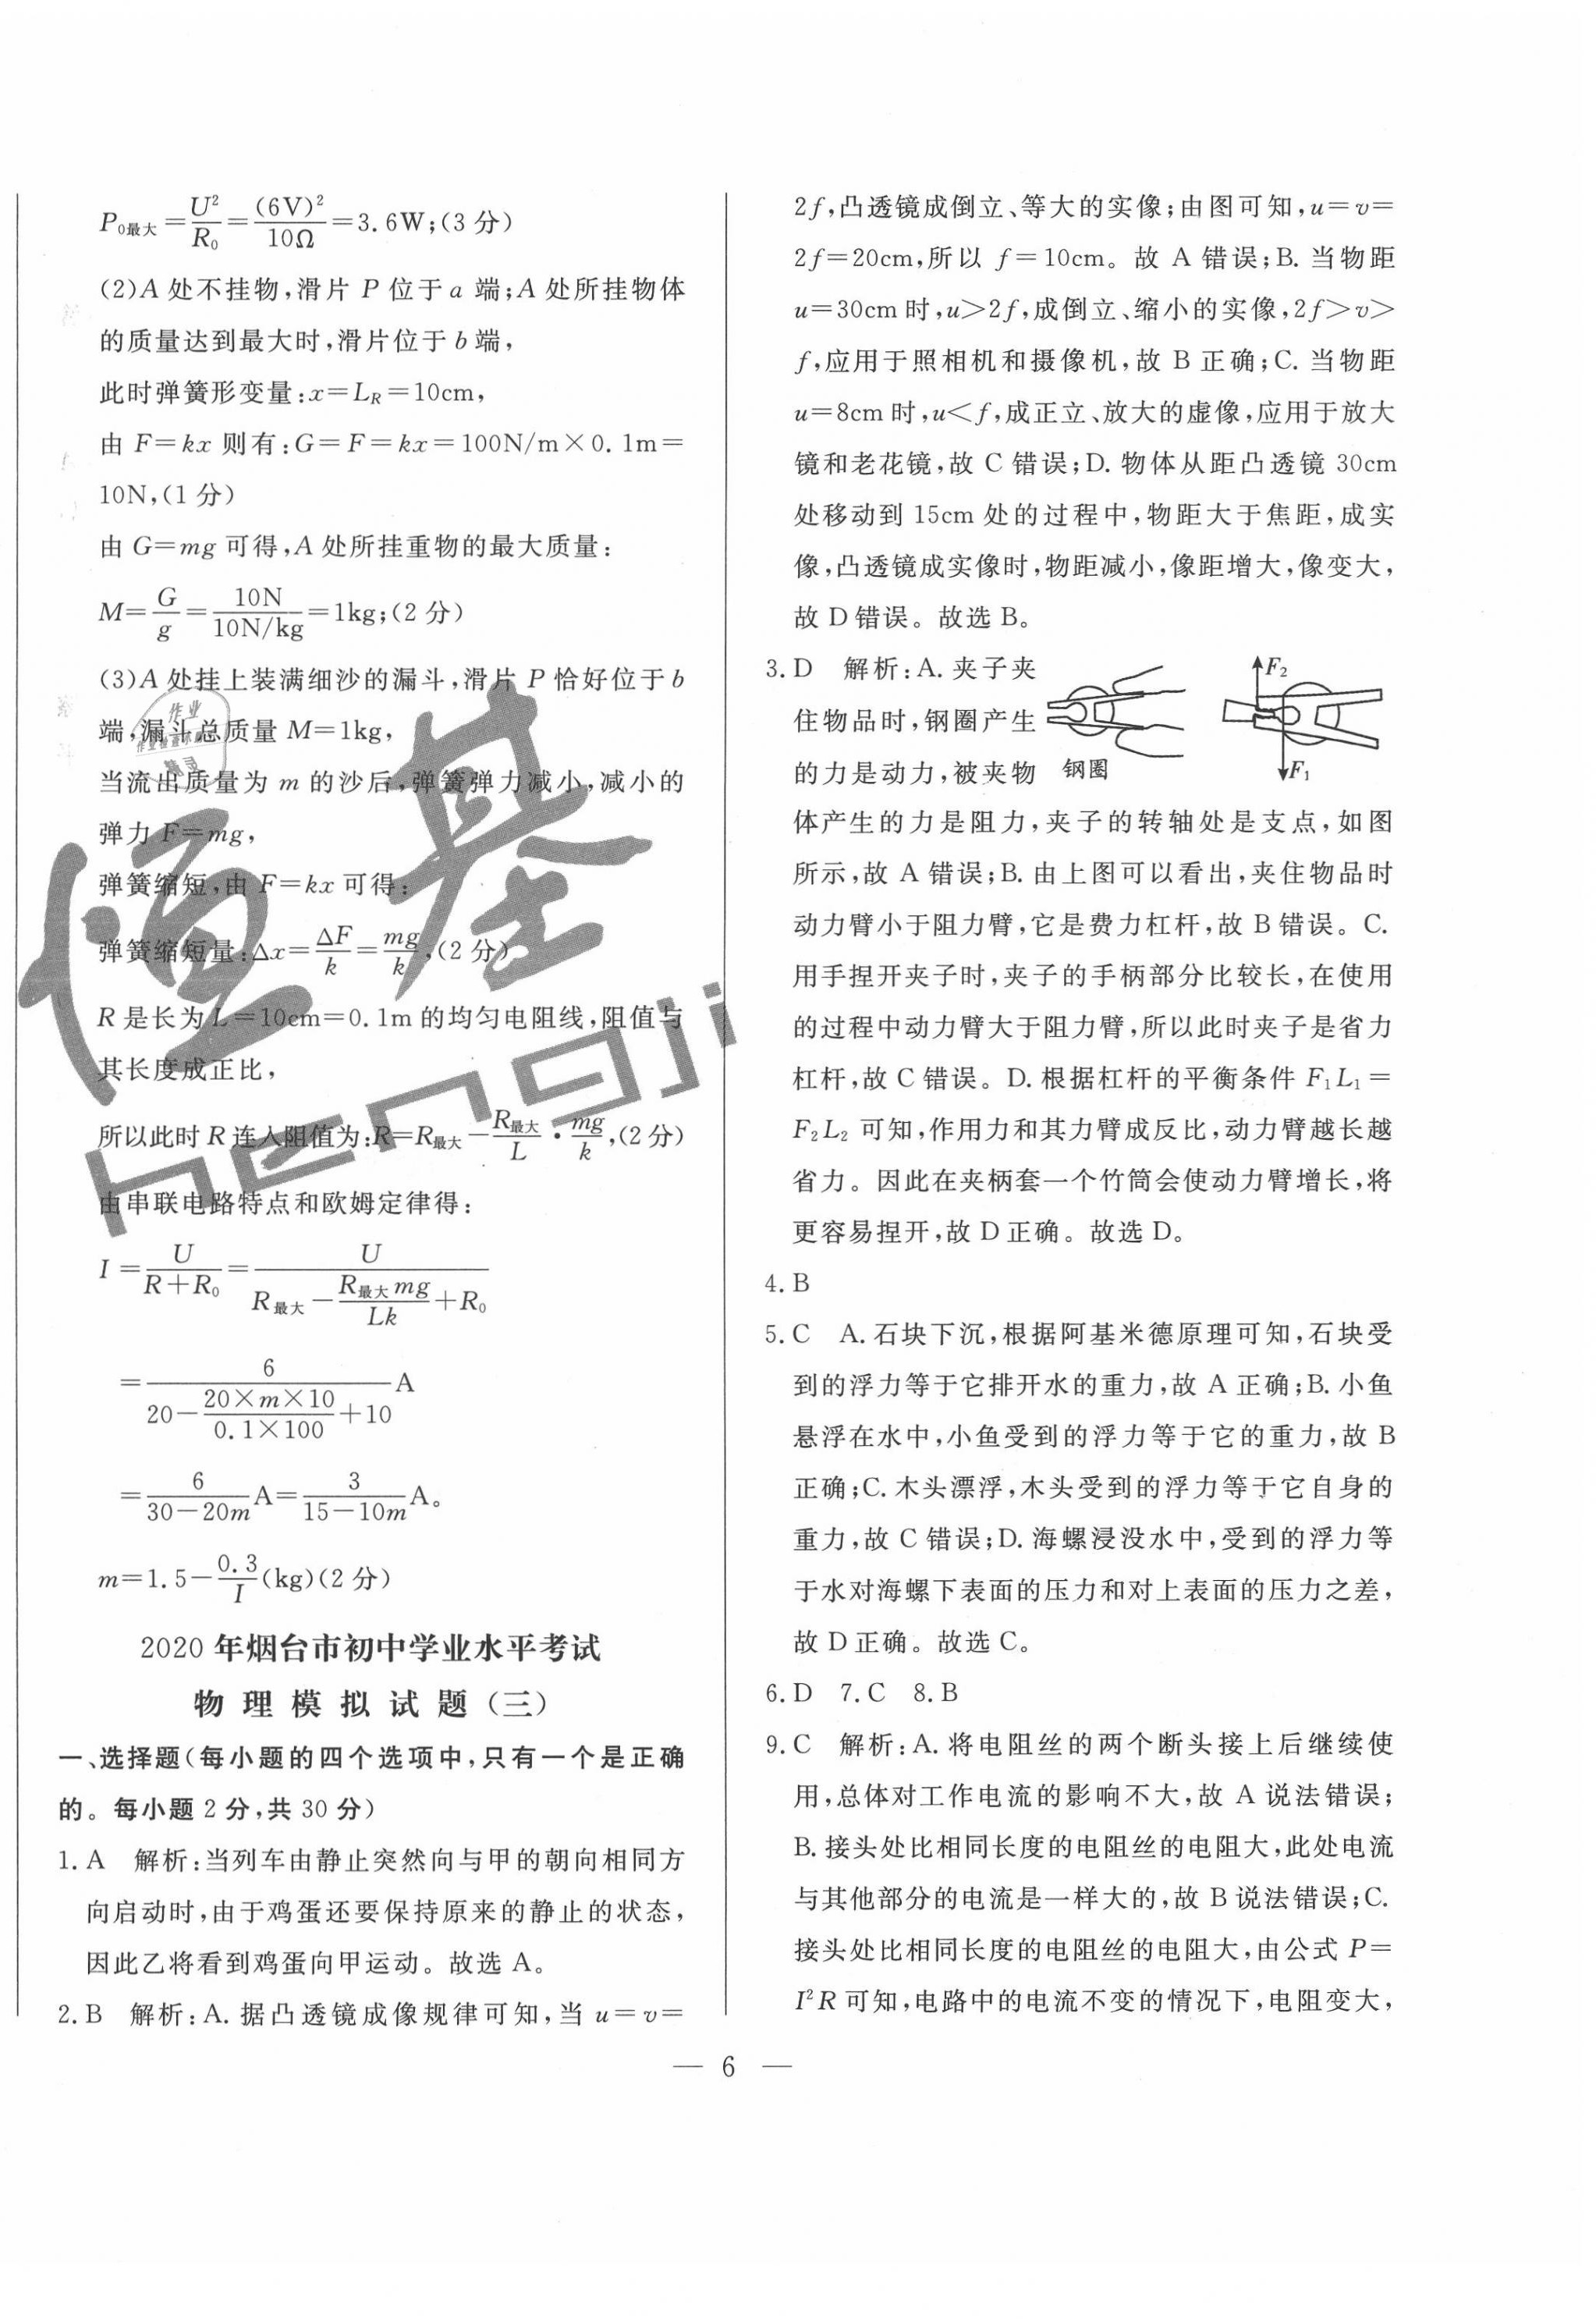 P₀最大=U²/R₀=(6V)²/10Ω=3.6W;(3分)
(2)A处不挂物,滑片P位于a端;A处所挂物体
的质量达到最大时,滑片位于b端,
此时弹簧形变量:x=L_R=10cm,
由F=kx则有:G=F=kx=100N/m×0.1m=
10N,(1分)
由G=mg可得,A处所挂重物的最大质量:
M=G/g=10N/(10N/kg)=1kg;(2分)
(3)A处挂上装满细沙的漏斗,滑片P恰好位于b
端,漏斗总质量M=1kg,
当流出质量为m的沙后,弹簧弹力减小,减小的
弹力F=mg,
弹簧缩短,由F=kx可得:
弹簧缩短量:Δx=ΔF/k=mg/k,(2分)
R是长为L=10cm=0.1m的均匀电阻线,阻值与
其长度成正比,
所以此时R连入阻值为:R=R最大-R最大/L·mg/k,(2分)
由串联电路特点和欧姆定律得:
I=U/(R+R₀)=U/(R最大-R最大mg/Lk+R₀)
=6/(20-(20×m×10)/(0.1×100)+10)A
=6/(30-20m)A=3/(15-10m)A。
m=1.5-0.3/I(kg)(2分)
2020年烟台市初中学业水平考试
物理模拟试题(三)
一、选择题(每小题的四个选项中,只有一个是正确
的。每小题2分,共30分)
1.A 解析:当列车由静止突然向与甲的朝向相同方
向启动时,由于鸡蛋还要保持原来的静止的状态,
因此乙将看到鸡蛋向甲运动。故选A。
2.B 解析:A.据凸透镜成像规律可知,当u=v=
2f,凸透镜成倒立、等大的实像;由图可知,u=v=
2f=20cm,所以f=10cm。故A错误;B.当物距
u=30cm时,u>2f,成倒立、缩小的实像,2f>v>
f,应用于照相机和摄像机,故B正确;C.当物距
u=8cm时,u<f,成正立、放大的虚像,应用于放大
镜和老花镜,故C错误;D.物体从距凸透镜30cm
处移动到15cm处的过程中,物距大于焦距,成实
像,凸透镜成实像时,物距减小,像距增大,像变大,
故D错误。故选B。
3.D 解析:A.夹子夹
住物品时,钢圈产生
的力是动力,被夹物
钢圈
F₂
F₁
体产生的力是阻力,夹子的转轴处是支点,如图
所示,故A错误;B.由上图可以看出,夹住物品时
动力臂小于阻力臂,它是费力杠杆,故B错误。C.
用手捏开夹子时,夹子的手柄部分比较长,在使用
的过程中动力臂大于阻力臂,所以此时夹子是省力
杠杆,故C错误。D.根据杠杆的平衡条件F₁L₁=
F₂L₂可知,作用力和其力臂成反比,动力臂越长越
省力。因此在夹柄套一个竹筒会使动力臂增长,将
更容易捏开,故D正确。故选D。
4.B
5.C A.石块下沉,根据阿基米德原理可知,石块受
到的浮力等于它排开水的重力,故A正确;B.小鱼
悬浮在水中,小鱼受到的浮力等于它的重力,故B
正确;C.木头漂浮,木头受到的浮力等于它自身的
重力,故C错误;D.海螺浸没水中,受到的浮力等
于水对海螺下表面的压力和对上表面的压力之差,
故D正确。故选C。
6.D 7.C 8.B
9.C 解析:A.将电阻丝的两个断头接上后继续使
用,总体对工作电流的影响不大,故A说法错误;
B.接头处比相同长度的电阻丝的电阻大,此处电流
与其他部分的电流是一样大的,故B说法错误;C.
接头处比相同长度的电阻丝的电阻大,由公式P=
I²R可知,电路中的电流不变的情况下,电阻变大,
— 6 —
恒基
hengji
作业
精灵